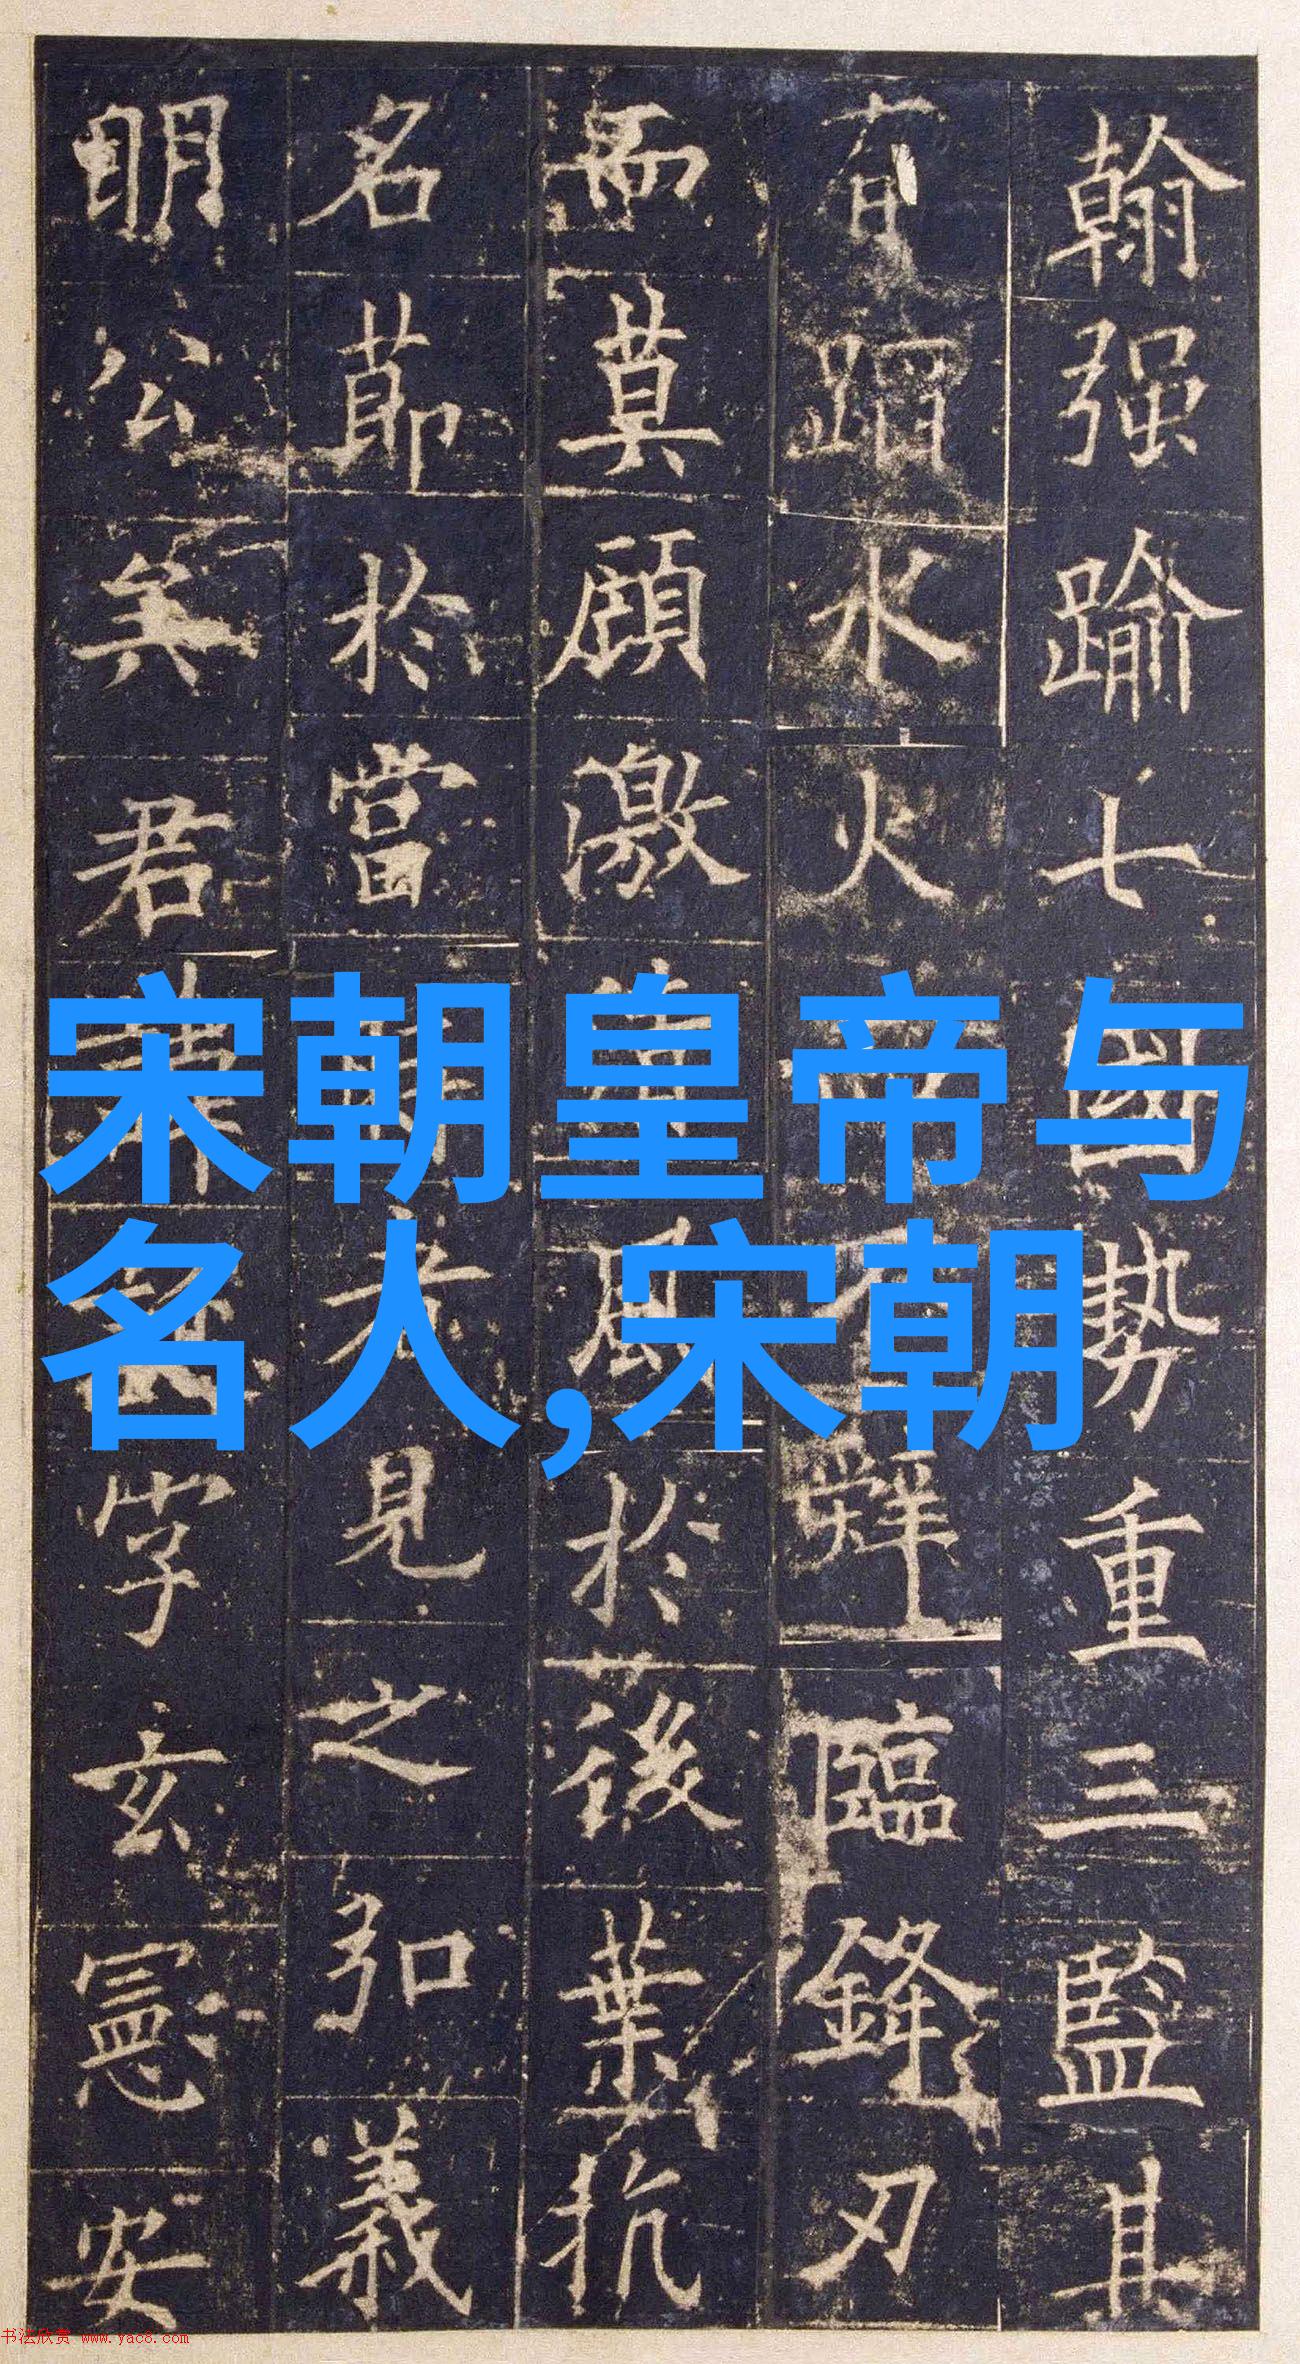 翰强踰七國勢重三監其
有蹈水火辭臨鋒刃
而莫顧激風於後葉抗
名節於當者見之弘義
明公矣君諱字玄憲安
宋朝皇帝与
名人,宋朝
书法欣赏 www.yac8.com